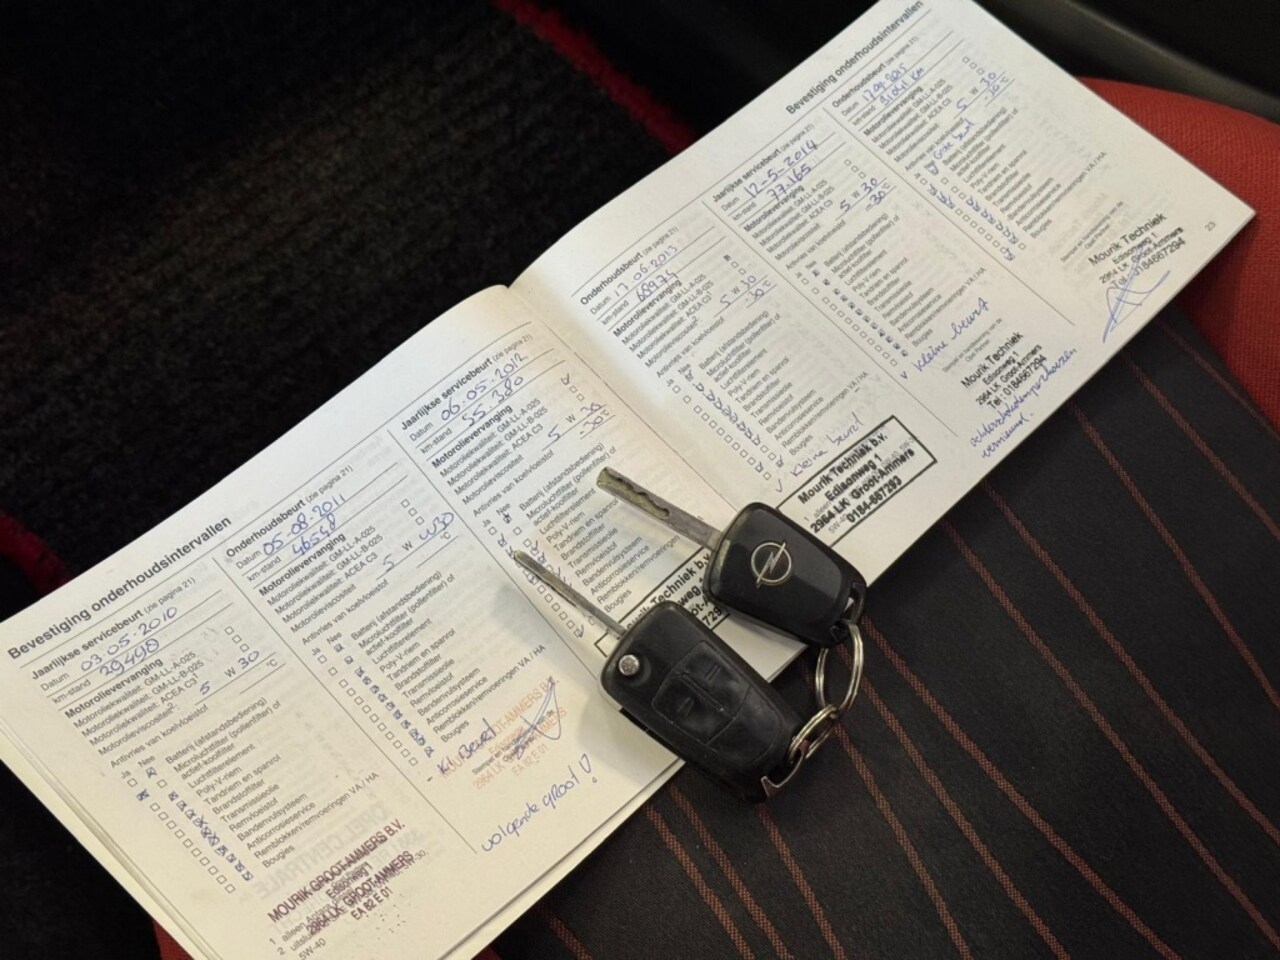 Bevestiging onderhoudsintervallen
Jaarlijkse servicebeurt (zie pagina 21)
Datum 03.05.2010
km-stand 29498
Motorolievervanging
Motoroliekwaliteit: GM-LL-A-025
Motoroliekwaliteit: GM-LL-B-025
Motoroliekwaliteit: ACEA C3
Motorolieviscositeit² 5 W 30
Antivries van koelvloeistof °C
Ja Nee
Batterij (afstandsbediening)
Microluchtfilter (pollenfilter) of
actief-koolfilter
Luchtfilterelement
Poly-V-riem
Tandriem en spanrol
Brandstoffilter
Transmissieolie
Remvloeistof
Bandenvulsysteem
Anticorrosieservice
Remblokken/remvoeringen VA / HA
Bougies
MOURIK GROOT-AMMERS B.V.
Edisonweg 1
2964 LK GROOT-AMMERS
EA 82 E 01
5W-40
Onderhoudsbeurt (zie pagina 21)
Datum 05-08-2011
km-stand 46548
Motorolievervanging
Motoroliekwaliteit: GM-LL-A-025
Motoroliekwaliteit: GM-LL-B-025
Motoroliekwaliteit: ACEA C3
Motorolieviscositeit 5 W W30
Antivries van koelvloeistof °C
Ja Nee
Batterij (afstandsbediening)
Microluchtfilter (pollenfilter) of
actief-koolfilter
Luchtfilterelement
Poly-V-riem
Tandriem en spanrol
Brandstoffilter
Transmissieolie
Remvloeistof
Bandenvulsysteem
Anticorrosieservice
Remblokken/remvoeringen VA / HA
Bougies
- Kl. Beurt
2964 LK
EA 82 E 01
volgende groot!
Jaarlijkse servicebeurt (zie pagina 21)
Datum 06.05.2012
km-stand 55.380
Motorolievervanging
Motoroliekwaliteit: GM-LL-A-025
Motoroliekwaliteit: GM-LL-B-025
Motoroliekwaliteit: ACEA C3
Motorolieviscositeit 5 W 30
Antivries van koelvloeistof -30°C
Ja Nee
Batterij (afstandsbediening)
Microluchtfilter (pollenfilter) of
actief-koolfilter
Luchtfilterelement
Poly-V-riem
Tandriem en spanrol
Brandstoffilter
Transmissieolie
Remvloeistof
Bandenvulsysteem
Anticorrosieservice
Remblokken/remvoeringen VA / HA
Bougies
Bevestiging onderhoudsintervallen
Onderhoudsbeurt (zie pagina 21)
Datum 17.06.2013
km-stand 68974
Motorolievervanging
Motoroliekwaliteit: GM-LL-A-025
Motoroliekwaliteit: GM-LL-B-025
Motoroliekwaliteit: ACEA C3
Motorolieviscositeit² 5 W 30
Antivries van koelvloeistof -30°C
Ja Nee
Batterij (afstandsbediening)
Microluchtfilter (pollenfilter) of
actief-koolfilter
Luchtfilterelement
Poly-V-riem
Tandriem en spanrol
Brandstoffilter
Transmissieolie
Remvloeistof
Bandenvulsysteem
Anticorrosieservice
Remblokken/remvoeringen VA / HA
Bougies
v Kleine beurt
Mourik Techniek b.v.
Edisonweg 1
2964 LK Groot-Ammers
0184-667293
Jaarlijkse servicebeurt (zie pagina 21)
Datum 12-5-2014
km-stand 77.165
Motorolievervanging
Motoroliekwaliteit: GM-LL-A-025
Motoroliekwaliteit: GM-LL-B-025
Motoroliekwaliteit: ACEA C3
Motorolieviscositeit 5 W 30
Antivries van koelvloeistof -30°C
Ja Nee
Batterij (afstandsbediening)
Microluchtfilter (pollenfilter) of
actief-koolfilter
Luchtfilterelement
Poly-V-riem
Tandriem en spanrol
Brandstoffilter
Transmissieolie
Remvloeistof
Bandenvulsysteem
Anticorrosieservice
Remblokken/remvoeringen VA / HA
Bougies
v Kleine beurt
Mourik Techniek
Edisonweg 1
2964 LK Groot-Ammers
Tel: 0184667294
vernieuwd.
Onderhoudsbeurt (zie pagina 21)
km-stand
Motorolievervanging
Motoroliekwaliteit: GM-LL-A-025
Motoroliekwaliteit: GM-LL-B-025
Motoroliekwaliteit: ACEA C3
Motorolieviscositeit 5 W 30
Antivries van koelvloeistof
Ja Nee
Batterij (afstandsbediening)
Microluchtfilter (pollenfilter) of
actief-koolfilter
Luchtfilterelement
Poly-V-riem
Tandriem en spanrol
Brandstoffilter
Transmissieolie
Remvloeistof
Bandenvulsysteem
Anticorrosieservice
Remblokken/remvoeringen VA / HA
Bougies
Mourik Techniek
Edisonweg 1
2964 LK Groot-Ammers
Tel: 0184667294
23